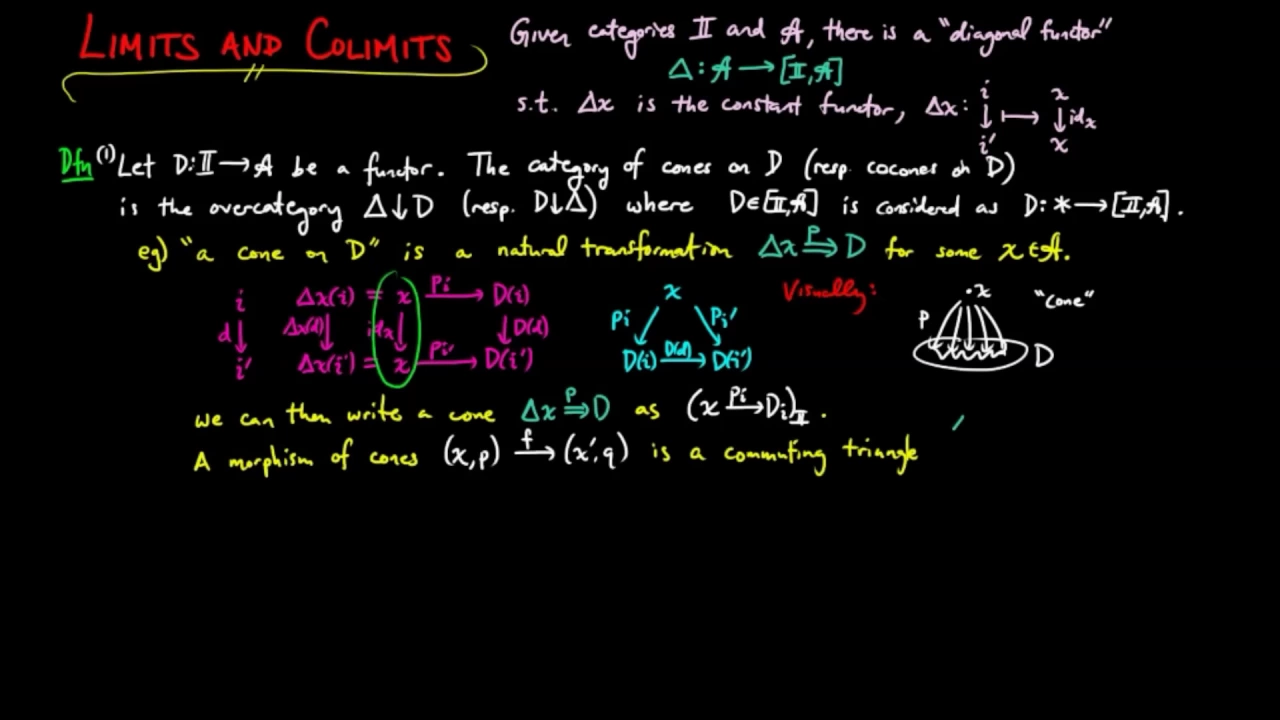 LIMITS AND COLIMITS
Given categories 𝕀 and 𝒜, there is a "diagonal functor"
Δ : 𝒜 → [𝕀, 𝒜]
s.t. Δx is the constant functor, Δx : i ↓ i' ↦ x ↓ id_x x
Dfn (1) Let D: 𝕀 → 𝒜 be a functor. The category of cones on D (resp. cocones on D)
is the overcategory Δ↓D (resp. D↓Δ) where D∈[𝕀,𝒜] is considered as D: * → [𝕀,𝒜].
eg) "a cone on D" is a natural transformation Δx ⇒ᵖ D for some x∈𝒜.
i Δx(i) = x —p_i→ D(i)
d↓ Δx(d)↓ id_x↓ ↓D(d)
i' Δx(i') = x —p_i'→ D(i')
x
p_i ↙ ↘ p_i'
D(i) —D(d)→ D(i')
Visually:
·x
"cone"
p
D
we can then write a cone Δx ⇒ᵖ D as (x —p_i→ D_i)_𝕀 .
A morphism of cones (x,p) —f→ (x',q) is a commuting triangle